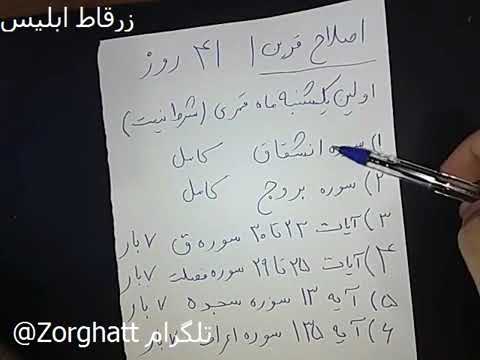 زرقاط ابلیس
اصلاح قرین | ۴۱ روز
اولین یکشنبه ماه قمری (شرط نیست)
۱) سوره انشقاق کامل
۲) سوره بروج کامل
۳) آیات ۲۳ تا ۳۰ سوره ق ۷ بار
۴) آیات ۲۵ تا ۲۹ سوره فصلت ۷ بار
۵) آیه ۱۳ سوره سجده ۷ بار
۶) آیه ۱۳۵ سوره بار
تلگرام @Zorghatt